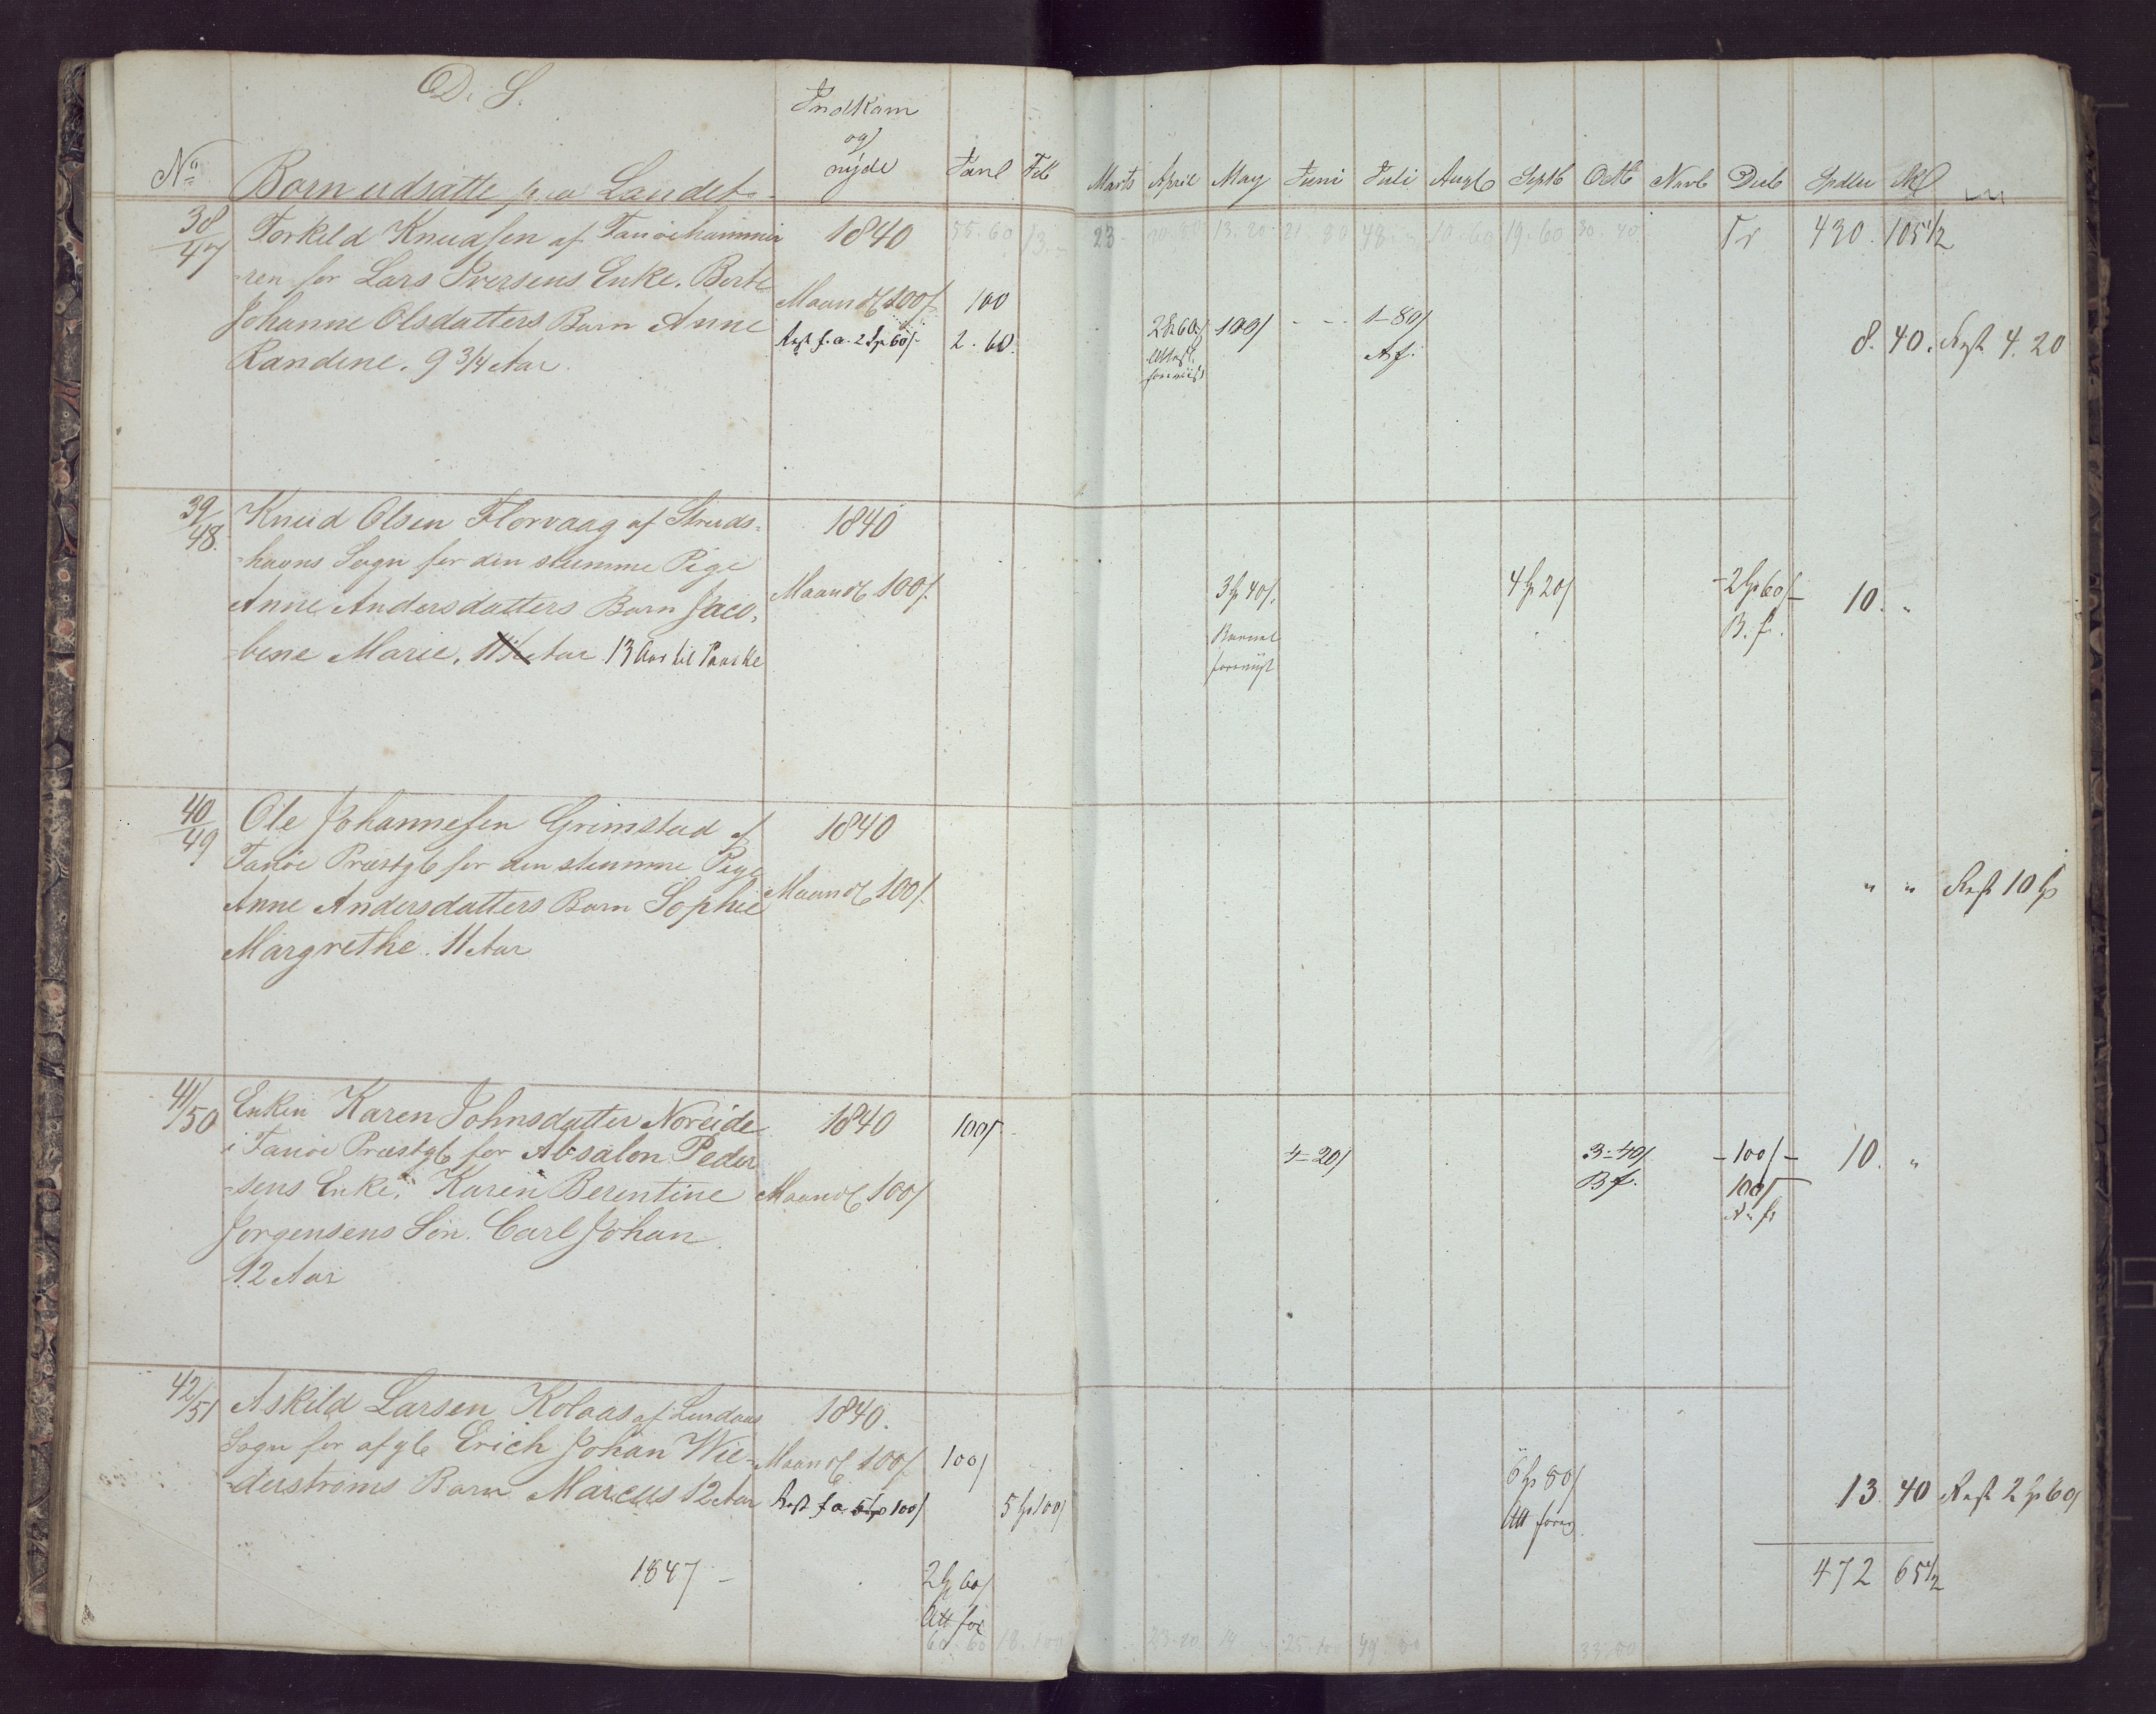 D. S.
No
Børn udsatte paa Landet
Indkom
og
nyde
Janl Feb Marts April May Juni Juli Augb Septb Octb Novb Decb Spdler
38/47
Torkild Knudsen af Fanöehammer
ren for Lars Iversens Enke. Berte
Johanne Olsdatters Barn Anne
Randine. 9 3/4 Aar.
1840
Maandl 100/
Rest f. a. 2 Sp 60/
55. 60 13. 23 13. 20 21 80 48. 10 60 19. 60 30. 40
Tr 430. 105 1/2
100
2. 60.
2 Sp 60/ 100/ - - - 1-80/
Attest. foreviist
A f.
8. 40. Rest 4. 20
39/48.
Knud Olsen Florvaag af Struds=
=havns Sogn for den stumme Pige
Anne Andersdatters Barn Jaco=
=bine Marie, Aar 13 Aar til Paaske
1840
Maandl 100/.
3 Sp 40/.
Barnet
foreviist
4 Sp 20/
- 2 Sp 60/ -
B. f.
10. "
40/49
Ole Johannesen Grimstad af
Fanöe Præstgb for den stumme Pige
Anne Andersdatters Barn Sophie
Margrethe. 11 Aar
1840
Maandl 100/.
" " Rest 10 Sp
41/50
Enken Karen Johnsdatter Noreide
i Fanöe Præstgb for Absalon Peder
=sens Enke, Karen Berentine
Jørgensens Søn. Carl Johan
12 Aar
1840
Maandl 100/
100/-
4-20/
3-40/
B f.
- 100/ -
100/
A. f.
10. "
42/51
Askild Larsen Kolaas af Lindaas
Sogn for afgl Erich Johan Wie=
=derstrøms Barn Marcus 12 Aar
1840.
Maandl 100/
Rest f a 5 Sp 100/
100/
5 Sp 100/
6 Sp 80/
Att forev
13. 40 Rest 2 Sp 60/
1847 -
2 Sp 60/
Att for
472 65 1/2
60. 60 18. 100 23-80 14 25-100 49. 80 33. 80